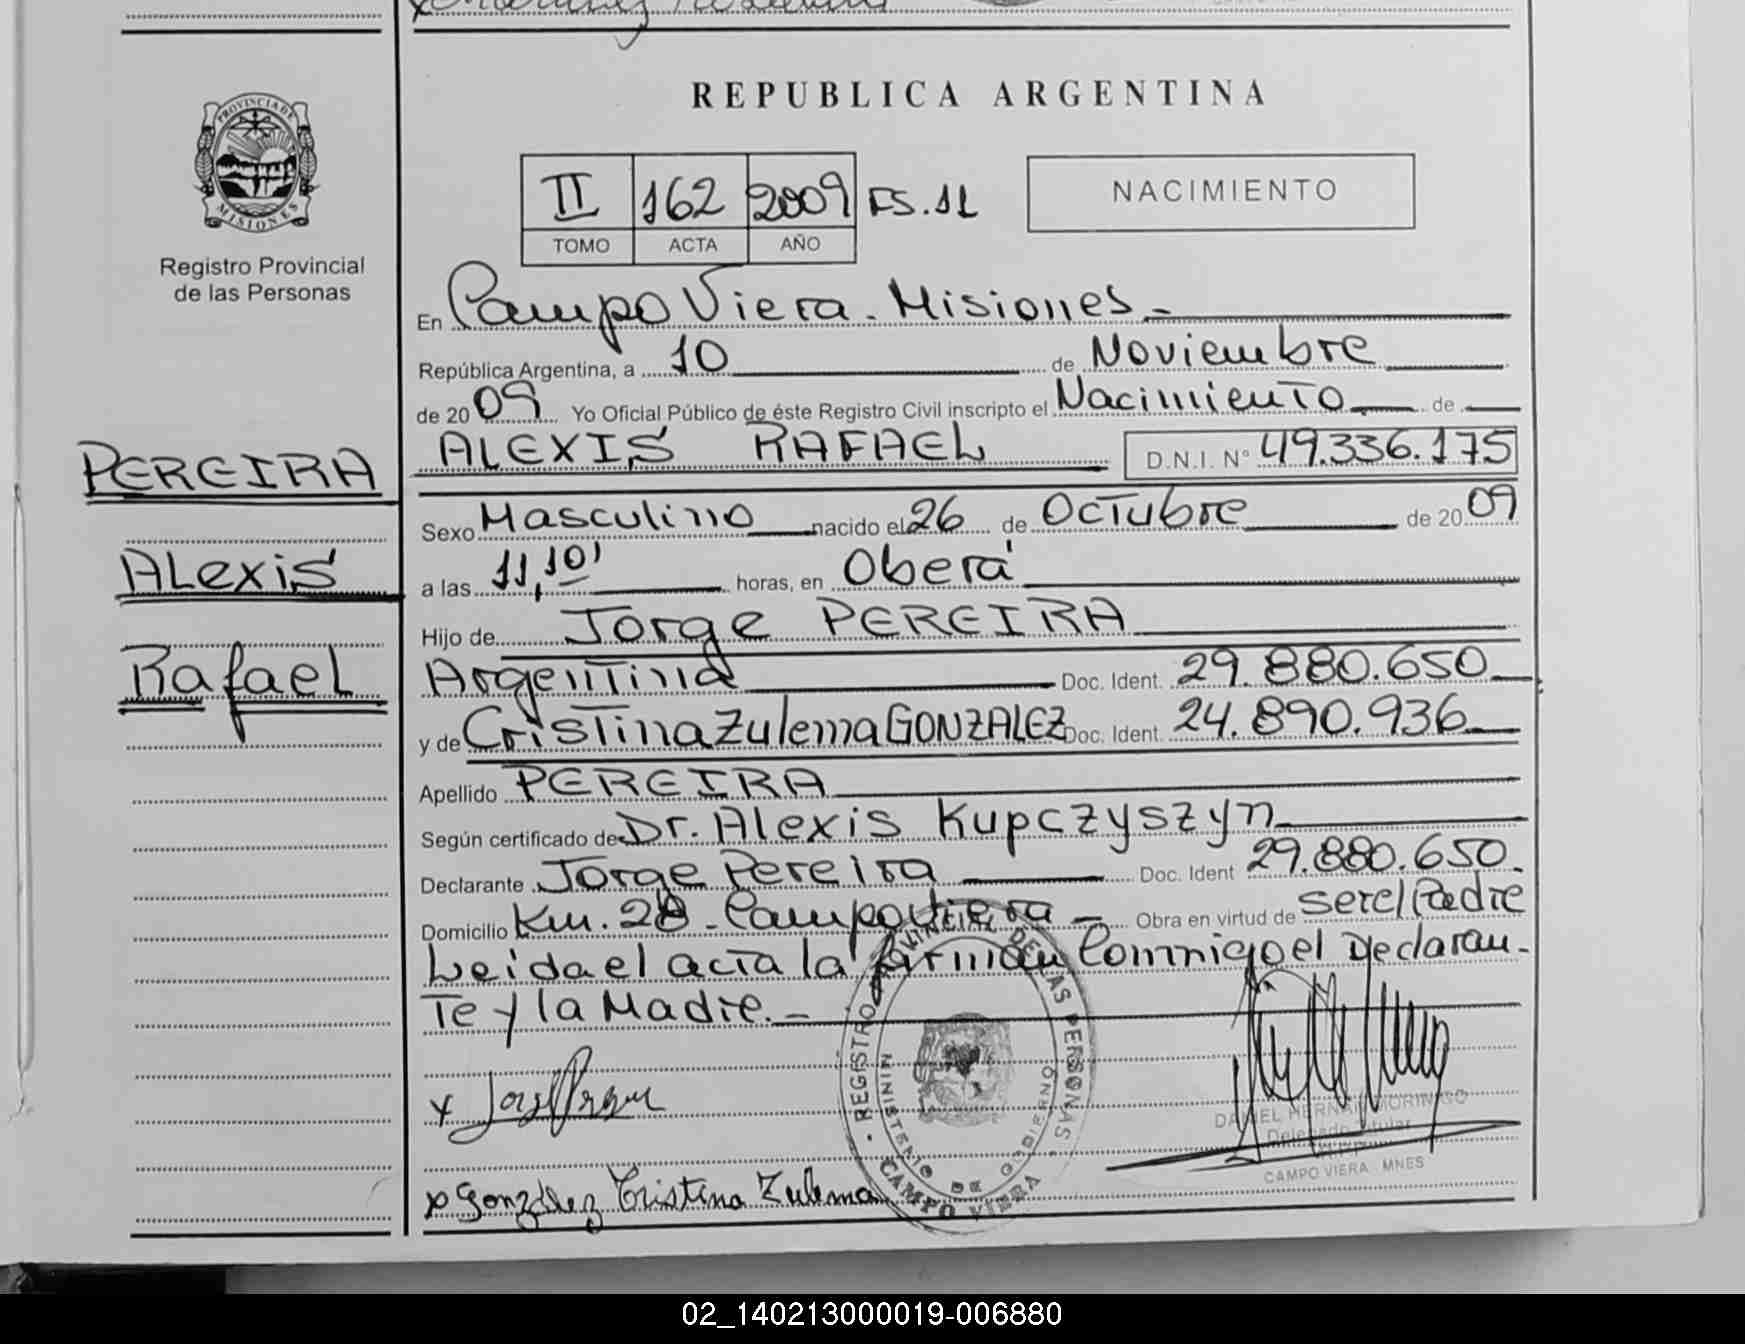 REPUBLICA ARGENTINA
PROVINCIA DE MISIONES
Registro Provincial
de las Personas
II 162 2009 FS. 11
TOMO ACTA AÑO
NACIMIENTO
En Campo Viera - Misiones -
República Argentina, a 10 de Noviembre
de 2009 Yo Oficial Público de éste Registro Civil inscripto el Nacimiento de
ALEXIS RAFAEL D.N.I. N° 49.336.175
PEREIRA
Alexis
Rafael
Sexo Masculino nacido el 26 de Octubre de 2009
a las 11,10' horas, en Oberá
Hijo de Jorge PEREIRA
Argentina Doc. Ident. 29.880.650
y de Cristina Zulema GONZALEZ Doc. Ident. 24.890.936
Apellido PEREIRA
Según certificado de Dr. Alexis Kupczyszyn
Declarante Jorge Pereira Doc. Ident 29.880.650.
Domicilio Km. 28 - Campo Viera - Obra en virtud de ser el Padre
Leida el acta la firman Conmigo el Declaran-
te y la Madre. -
REGISTRO PROVINCIAL DE LAS PERSONAS
MINISTERIO DE GOBIERNO
CAMPO VIERA
DANIEL HERNAN MORINIGO
Delegado Titular
CAMPO VIERA MNES
x González Cristina Zulema
02_140213000019-006880